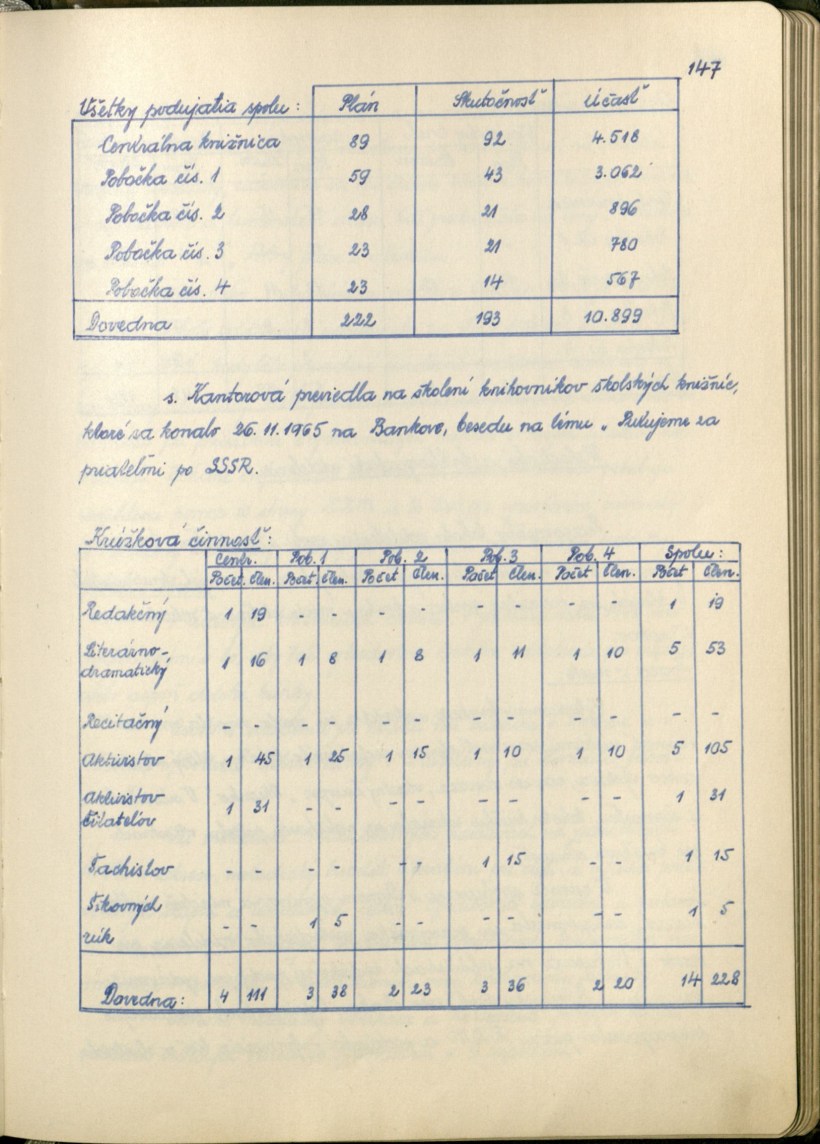 147
Všetky podujatia spolu: Plán Skutočnosť Účasť
Centrálna knižnica 89 92 4.518
Pobočka čís. 1 59 43 3.062
Pobočka čís. 2 28 21 896
Pobočka čís. 3 23 21 780
Pobočka čís. 4 23 14 567
Dovedna 222 193 10.899
s. Kantorová previedla na školení knihovníkov školských knižníc,
ktoré sa konalo 26.11.1965 na Bankove, besedu na tému „Putujeme za
priateľmi po SSSR.
Krúžková činnosť:
Centr. Pob. 1 Pob. 2 Pob. 3 Pob. 4 Spolu:
Počet Člen. Počet Člen. Počet Člen. Počet Člen. Počet Člen. Počet Člen.
Redakčný 1 19 - - - - - - - - 1 19
Literárno-
dramatický 1 16 1 8 1 8 1 11 1 10 5 53
Recitačný - - - - - - - - - - - -
Aktivistov 1 45 1 25 1 15 1 10 1 10 5 105
Aktivistov
čitateľov 1 31 - - - - - - - - 1 31
Šachistov - - - - - - 1 15 - - 1 15
Šikovných
rúk - - 1 5 - - - - - - 1 5
Dovedna: 4 111 3 38 2 23 3 36 2 20 14 228